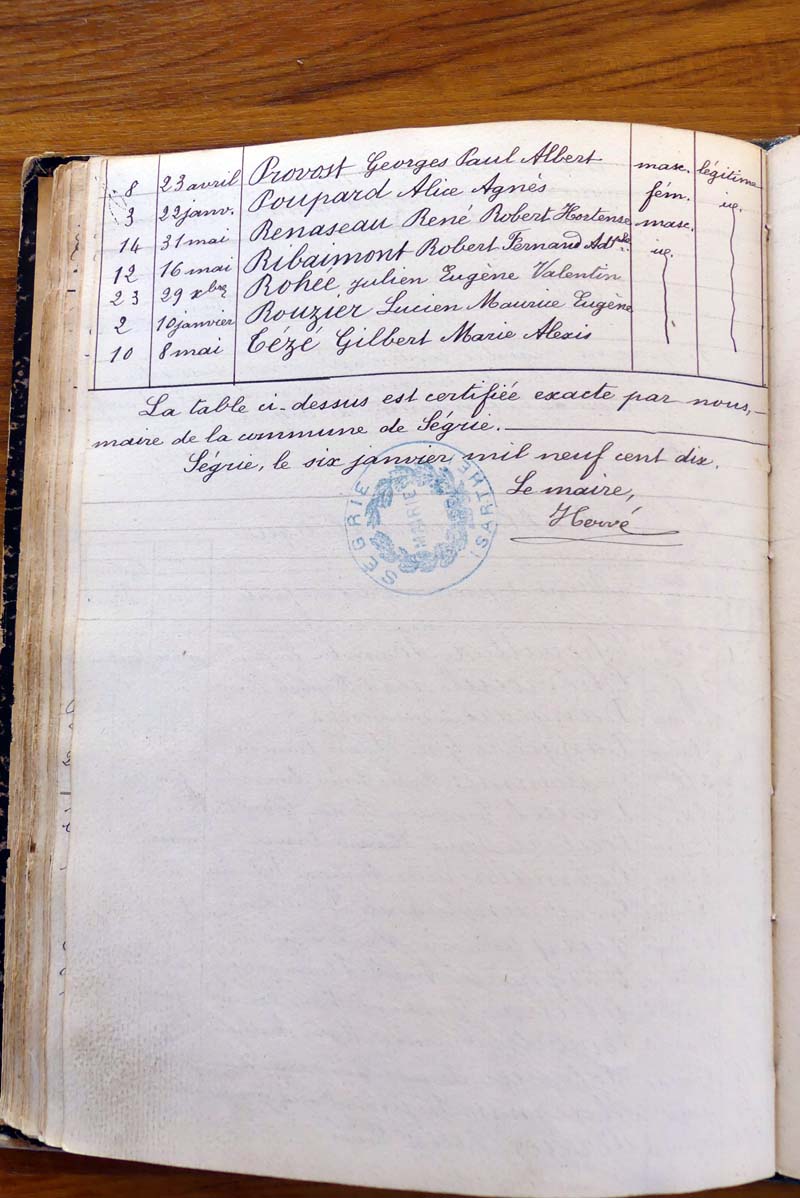 8 23 avril Provost Georges Paul Albert masc. légitime
3 22 janv. Poupard Alice Agnès fém. id.
14 31 mai Renaseau René Robert Hortense masc.
12 16 mai Ribaimont Robert Fernand id.
23 29 xbre Rohée Julien Eugène Valentin
2 10 janvier Rouzier Lucien Maurice Eugène
10 8 mai Tézé Gilbert Marie Alexis
La table ci-dessus est certifiée exacte par nous,
maire de la commune de Ségrie.
Ségrie, le six janvier mil neuf cent dix.
Le maire,
Hervé
MAIRIE DE SEGRIE (SARTHE)